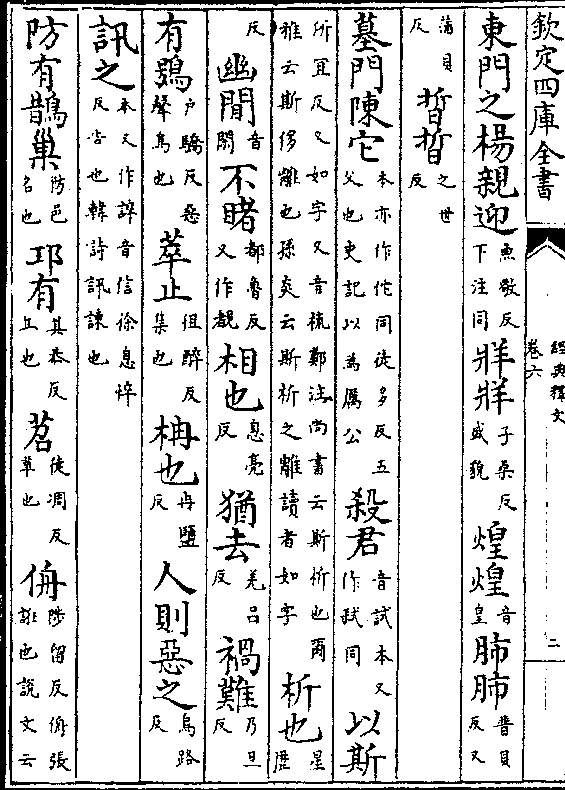 欽定四庫全書
經典釋文
卷六
二
東門之楊親迎魚敬反下注同牂牂子桑反盛貌煌煌音皇肺肺普貝反又
蒲貝反晢晢之世反
墓門陳它本亦作佗同徒多反五父也史記以為厲公殺君音試本又作弑同以斯
所宜反又如字又音梳鄭注尚書云斯析也爾雅云斯侈離也孫炎云斯析之離讀者如字析也星歷
反幽間音閑不睹都魯反又作覩相也息亮反猶去羌呂反禍難乃旦反
有鴞户驕反惡聲鳥也萃止徂醉反集也柟也冉鹽反人則惡之烏路反
訊之本又作誶音信徐息悴反告也韓詩訊諫也
防有鵲巢防邑名也邛有其恭反丘也苕徒凋反草也侜陟留反侜張誑也說文云